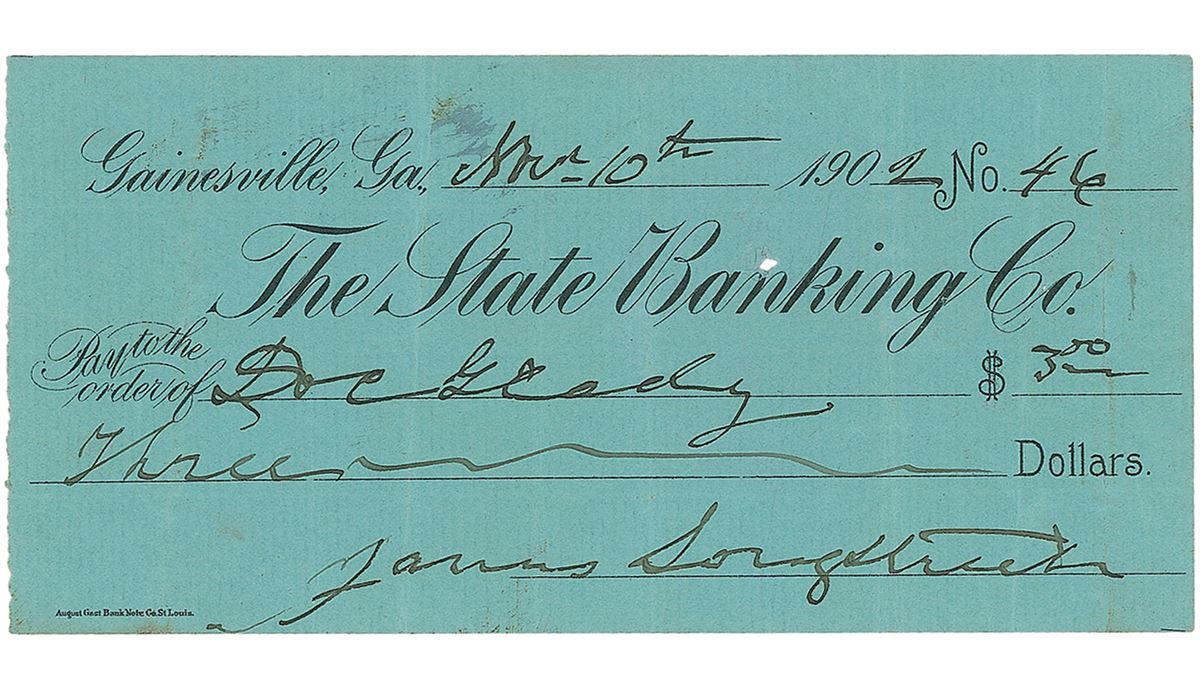 Gainesville, Ga., Nov. 10th 1902 No. 46
The State Banking Co.
Pay to the order of Doc Grady $ 3.00
Three Dollars.
James Longstreet
August Gast Bank Note Co. St Louis.